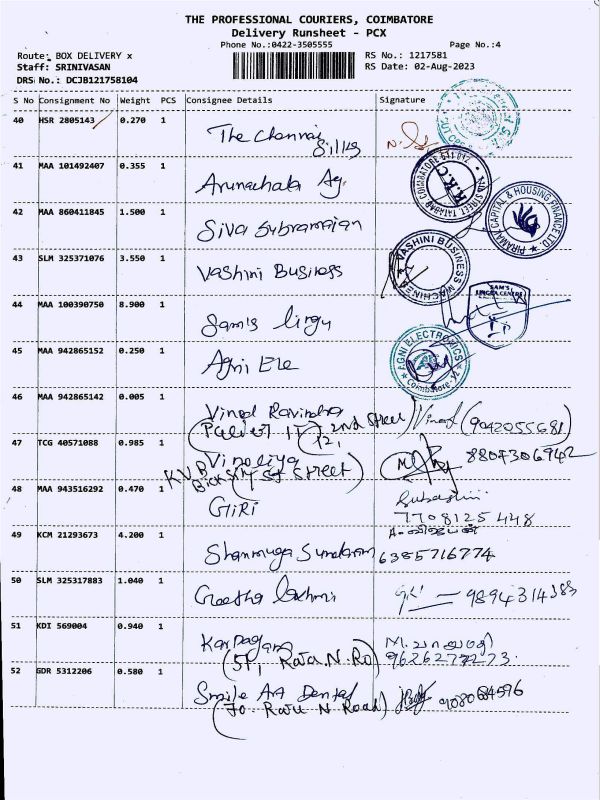 THE PROFESSIONAL COURIERS, COIMBATORE
Delivery Runsheet - PCX
Phone No.:0422-3505555 Page No.:4
Route: BOX DELIVERY x RS No.: 1217581
Staff: SRINIVASAN RS Date: 02-Aug-2023
DRS No.: DCJB121758104
S No Consignment No Weight PCS Consignee Details Signature
40 HSR 2805143 0.270 1
The Chennai
Silks
41 MAA 101492407 0.355 1
Arunachala Ag.
42 MAA 860411845 1.500 1
Siva Subramaian
PIRAMAL CAPITAL & HOUSING FINANCE LTD.
43 SLM 325371076 3.550 1
Vashini Business
VASHINI BUSINESS MACHINES
44 MAA 100390750 8.900 1
Sam's lingu
SAM'S
LINGUA CENTRE
45 MAA 942865152 0.250 1
Agni Ele
AGNI ELECTRONICS
Coimbatore-12
46 MAA 942865142 0.005 1
Vinod Ravindra
2nd Street Vinod (9042055681)
47 TCG 40571088 0.985 1
Vinoliya 8807306942
KVB
Street)
48 MAA 943516292 0.470 1
GIRI
7708125448
49 KCM 21293673 4.200 1
Shanmuga Sundaram 6385716774
50 SLM 325317883 1.040 1
Geetha Lakshmi
51 KDI 569004 0.940 1
Karpagam
(51, Raja N. Rd) 9626277273
52 GDR 5312206 0.580 1
Smile Art Dental
(70 Raju N Road)